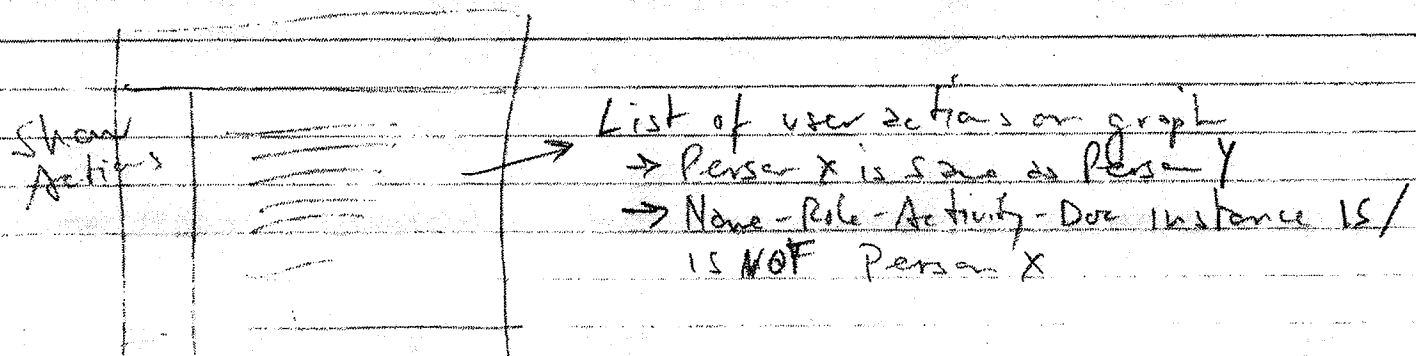 Show
Actions
List of user actions on graph
→ Person X is same as Person Y
→ Name-Role-Activity-Doc instance IS/
IS NOT Person X